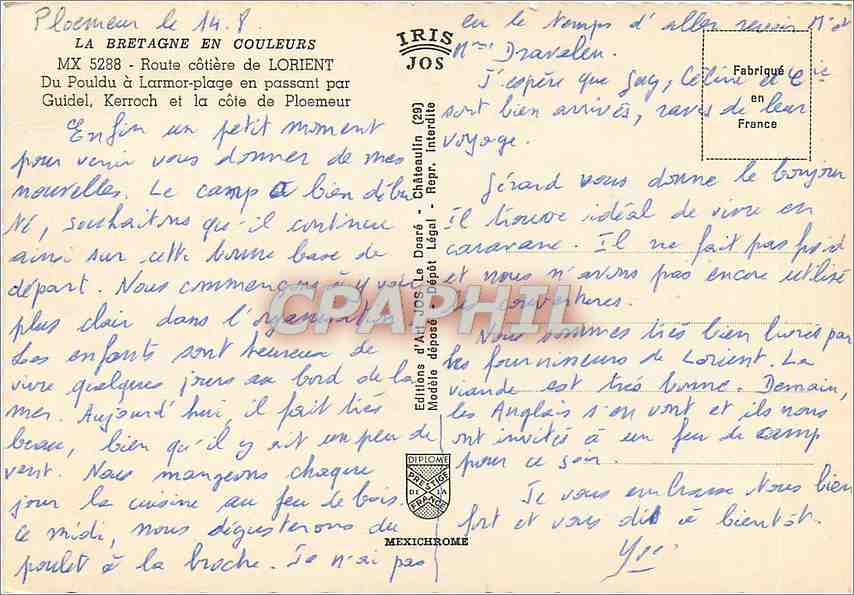 Ploemeur le 14.8.
LA BRETAGNE EN COULEURS
MX 5288 - Route côtière de LORIENT
Du Pouldu à Larmor-plage en passant par
Guidel, Kerroch et la côte de Ploemeur
Enfin un petit moment
pour venir vous donner de mes
nouvelles. Le camp a bien débu
té, souhaitons qu'il continue
ainsi sur cette bonne base de
départ. Nous commençons à y voir
plus clair dans l'organisation.
Les enfants sont heureux de
vivre quelques jours au bord de la
mer. Aujourd'hui, il fait très
beau, bien qu'il y ait un peu de
vent. Nous mangeons chaque
jour la cuisine au feu de bois.
Ce midi, nous dégusterons du
poulet à la broche. Je n'ai pas
IRIS
JOS
Editions d'Art JOS Le Doaré - Châteaulin (29)
Modèle déposé - Dépôt Légal - Repr. Interdite
CPAPHIL
DIPLOME
PRESTIGE
DE LA
FRANCE
MEXICHROME
eu le temps d'aller revoir Mr et
Mme Dravelen.
J'espère que Guy, Céline et Cie
sont bien arrivés, ravis de leur
voyage.
Fabriqué
en
France
Gérard vous donne le bonjour
Il trouve idéal de vivre en
caravane. Il ne fait pas froid
et nous n'avons pas encore utilisé
les couvertures.
Nous sommes très bien livrés par
les fournisseurs de Lorient. La
viande est très bonne. Demain,
les Anglais s'en vont et ils nous
ont invités à un feu de camp
pour ce soir.
Je vous embrasse tous bien
fort et vous dit à bientôt.